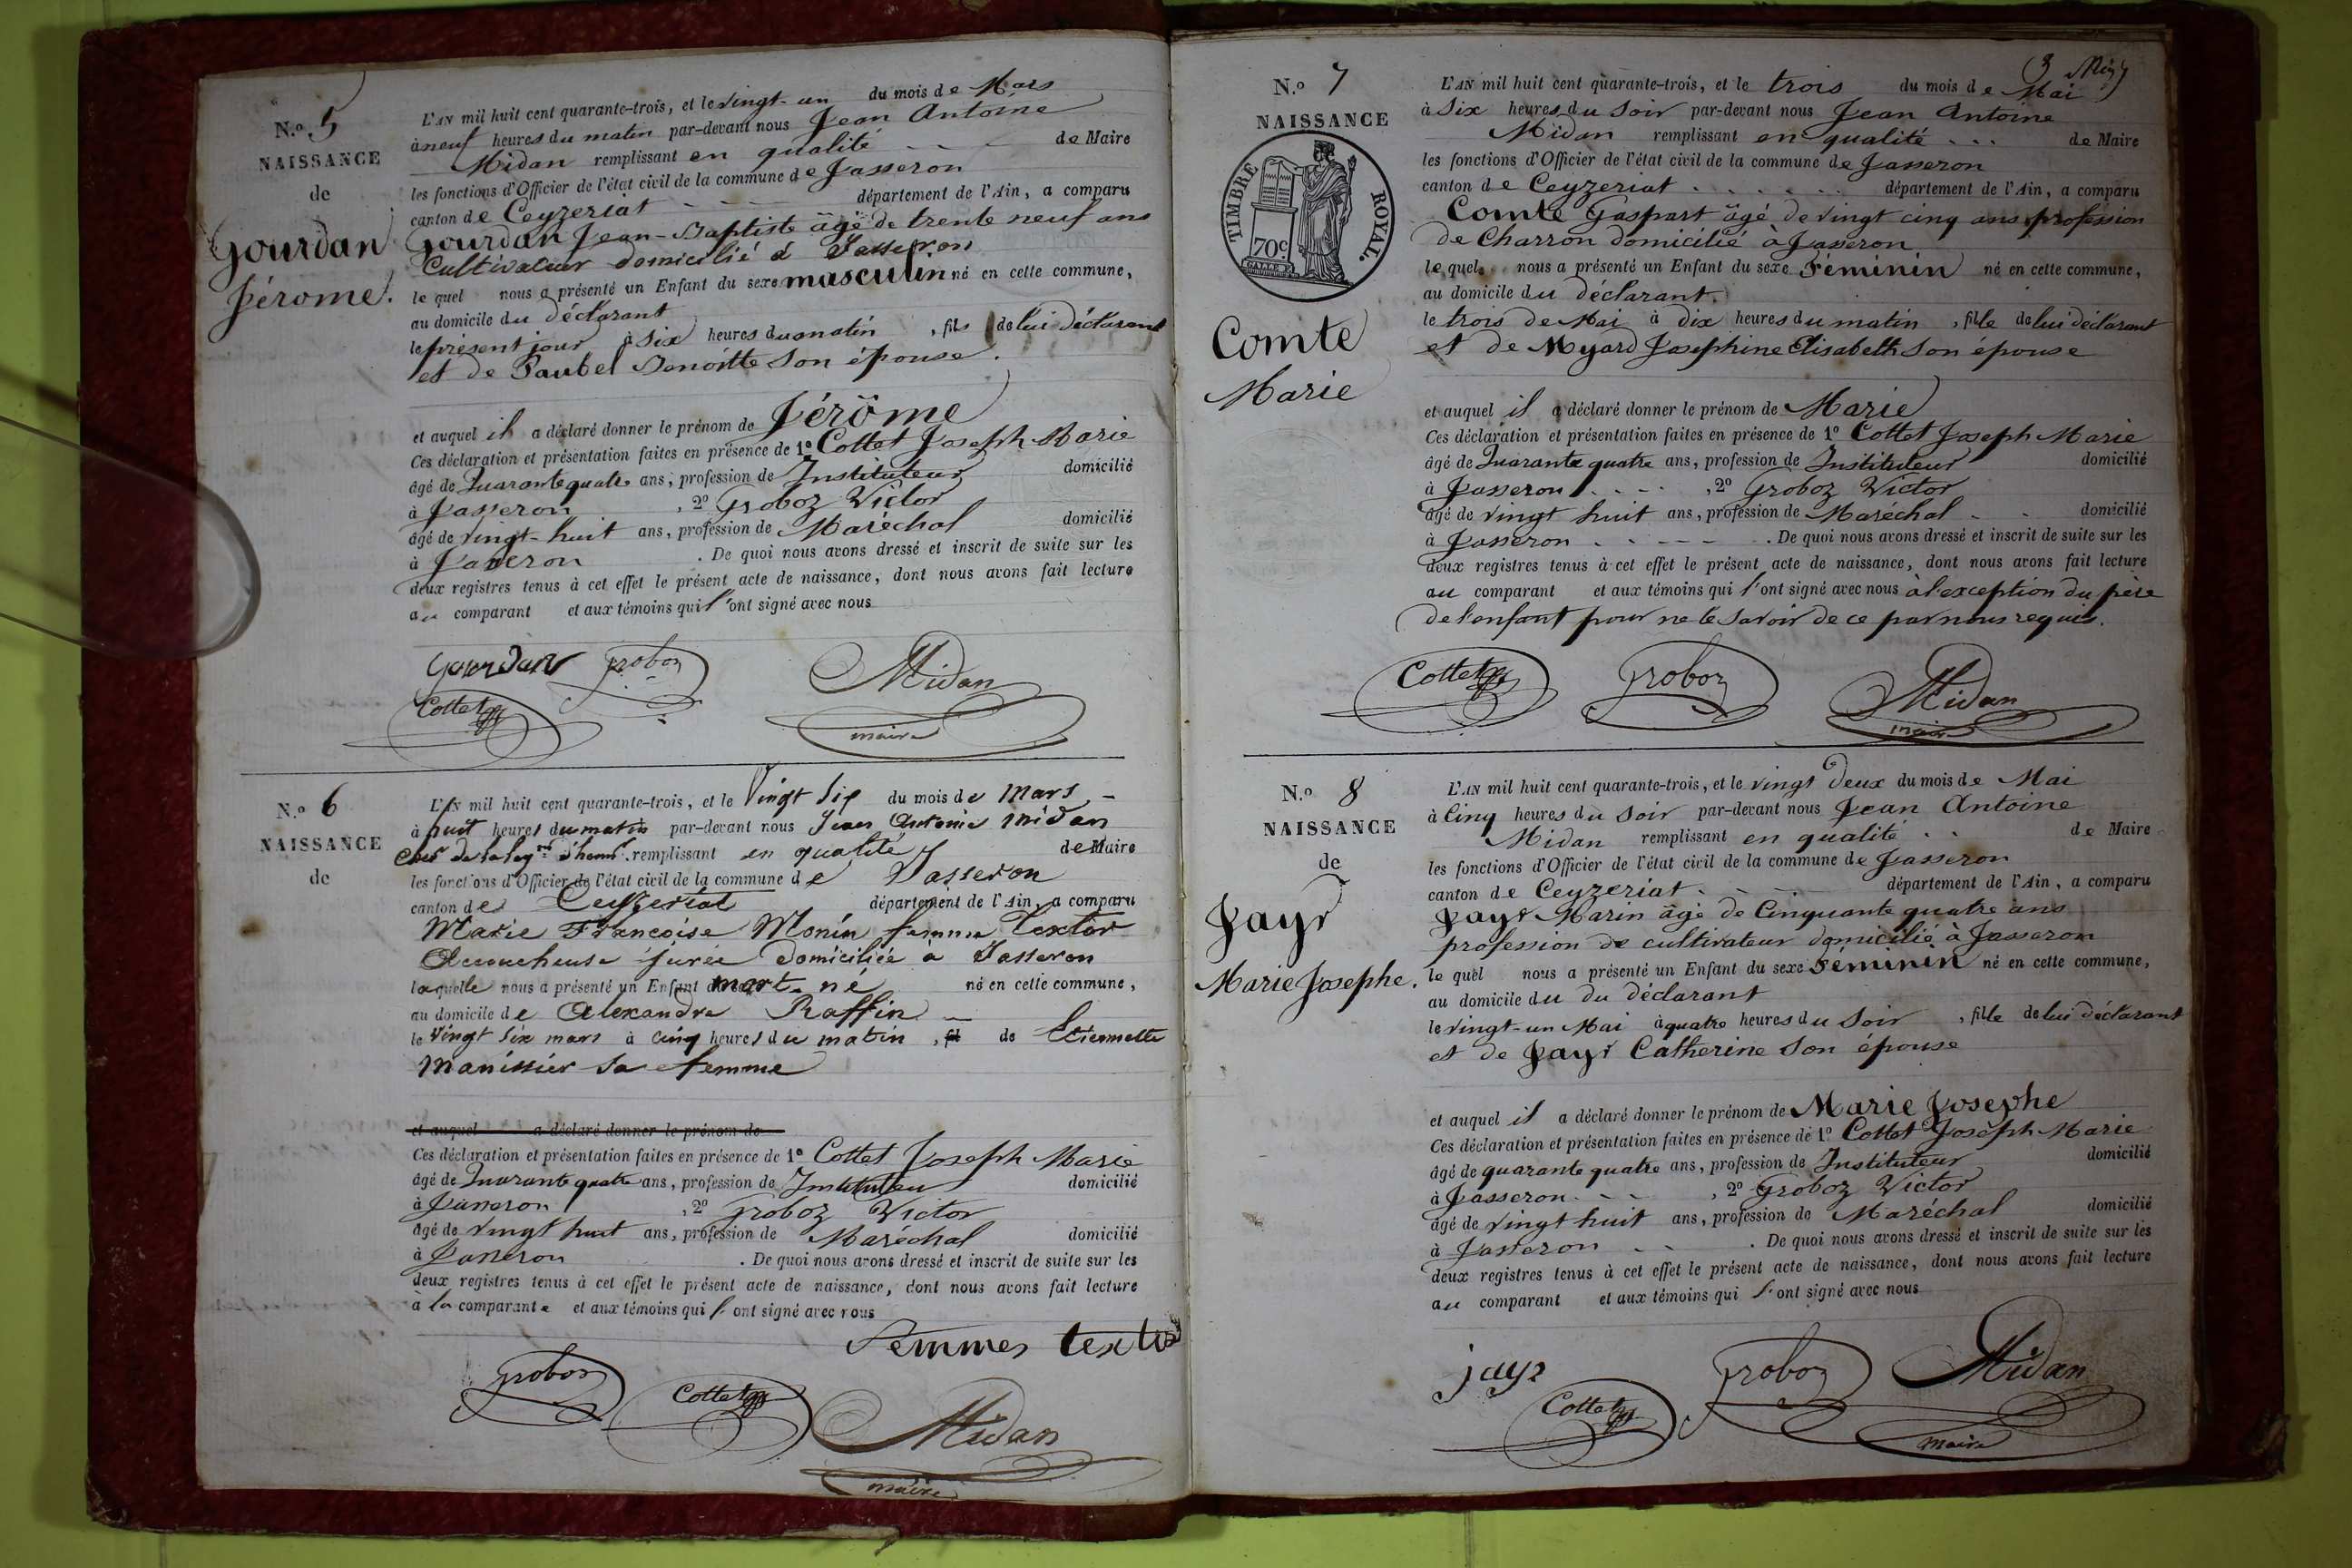 N.o 5
NAISSANCE
de
Gourdan
Jérome.
L'AN mil huit cent quarante-trois, et le vingt-un du mois de Mars
à neuf heures du matin par-devant nous Jean Antoine
Midan remplissant en qualité - - - de Maire
les fonctions d'Officier de l'état civil de la commune de Jasseron
canton de Ceyzeriat - - - département de l'Ain, a comparu
Gourdan Jean-Baptiste âgé de trente neuf ans
Cultivateur domicilié à Jasseron
le quel nous a présenté un Enfant du sexe masculin né en cette commune,
au domicile du déclarant
le présent jour à six heures du matin, fils de lui déclarant
et de Paubel Benoitte son épouse.
et auquel il a déclaré donner le prénom de Jérôme
Ces déclaration et présentation faites en présence de 1o Cottet Joseph Marie
âgé de Quarante quatre ans, profession de Instituteur domicilié
à Jasseron, 2o Groboz Victor
âgé de vingt-huit ans, profession de Maréchal domicilié
à Jasseron. De quoi nous avons dressé et inscrit de suite sur les
deux registres tenus à cet effet le présent acte de naissance, dont nous avons fait lecture
au comparant et aux témoins qui l'ont signé avec nous
Gourdan Groboz Midan
Cottet maire
N.o 6
NAISSANCE
de
L'AN mil huit cent quarante-trois, et le Vingt six du mois de Mars -
à huit heures du matin par-devant nous Jean Antoine Midan
remplissant en qualité de Maire
les fonctions d'Officier de l'état civil de la commune de Jasseron
canton de Ceyzeriat département de l'Ain, a comparu
Marie Françoise Monin femme Textor
Accoucheuse jurée domiciliée à Jasseron
laquelle nous a présenté un Enfant mort-né né en cette commune,
au domicile de Alexandre Raffin -
le vingt six mars à cinq heures du matin, fil de Etiennette
Manissier sa femme
et auquel a déclaré donner le prénom de
Ces déclaration et présentation faites en présence de 1o Cottet Joseph Marie
âgé de Quarante quatre ans, profession de Instituteur domicilié
à Jasseron, 2o Groboz Victor
âgé de vingt huit ans, profession de Maréchal domicilié
à Jasseron. De quoi nous avons dressé et inscrit de suite sur les
deux registres tenus à cet effet le présent acte de naissance, dont nous avons fait lecture
à la comparante et aux témoins qui l'ont signé avec nous
femmes textor
Groboz Cottet Midan
maire
N.o 7
NAISSANCE
TIMBRE ROYAL.
70c
Comte
Marie
3
L'AN mil huit cent quarante-trois, et le trois du mois de Mai
à six heures du soir par-devant nous Jean Antoine
Midan remplissant en qualité - - - de Maire
les fonctions d'Officier de l'état civil de la commune de Jasseron
canton de Ceyzeriat - - - département de l'Ain, a comparu
Comte Gaspart âgé de vingt cinq ans profession
de Charron domicilié à Jasseron
le quel nous a présenté un Enfant du sexe féminin né en cette commune,
au domicile du déclarant.
le trois de Mai à dix heures du matin, fille de lui déclarant
et de Myard Josephine Elisabeth son épouse
et auquel il a déclaré donner le prénom de Marie
Ces déclaration et présentation faites en présence de 1o Cottet Joseph Marie
âgé de Quarante quatre ans, profession de Instituteur domicilié
à Jasseron - - -, 2o Groboz Victor
âgé de vingt huit ans, profession de Maréchal - - domicilié
à Jasseron - - - -. De quoi nous avons dressé et inscrit de suite sur les
deux registres tenus à cet effet le présent acte de naissance, dont nous avons fait lecture
au comparant et aux témoins qui l'ont signé avec nous à l'exception du père
de l'enfant pour ne le savoir de ce par nous requis.
Cottet Groboz Midan
maire
N.o 8
NAISSANCE
de
Jayr
Marie Josephe.
L'AN mil huit cent quarante-trois, et le vingt deux du mois de Mai
à cinq heures du soir par-devant nous Jean Antoine
Midan remplissant en qualité - - de Maire
les fonctions d'Officier de l'état civil de la commune de Jasseron
canton de Ceyzeriat - - - département de l'Ain, a comparu
Jayr Marin âgé de Cinquante quatre ans
profession de cultivateur domicilié à Jasseron
le quel nous a présenté un Enfant du sexe féminin né en cette commune,
au domicile du du déclarant
le vingt-un Mai à quatre heures du soir, fille de lui déclarant
et de Jayr Catherine son épouse
et auquel il a déclaré donner le prénom de Marie Josephe
Ces déclaration et présentation faites en présence de 1o Cottet Joseph Marie
âgé de quarante quatre ans, profession de Instituteur domicilié
à Jasseron - - -, 2o Groboz Victor
âgé de vingt huit ans, profession de Maréchal domicilié
à Jasseron - -. De quoi nous avons dressé et inscrit de suite sur les
deux registres tenus à cet effet le présent acte de naissance, dont nous avons fait lecture
au comparant et aux témoins qui l'ont signé avec nous
jayr Groboz Midan
Cottet maire